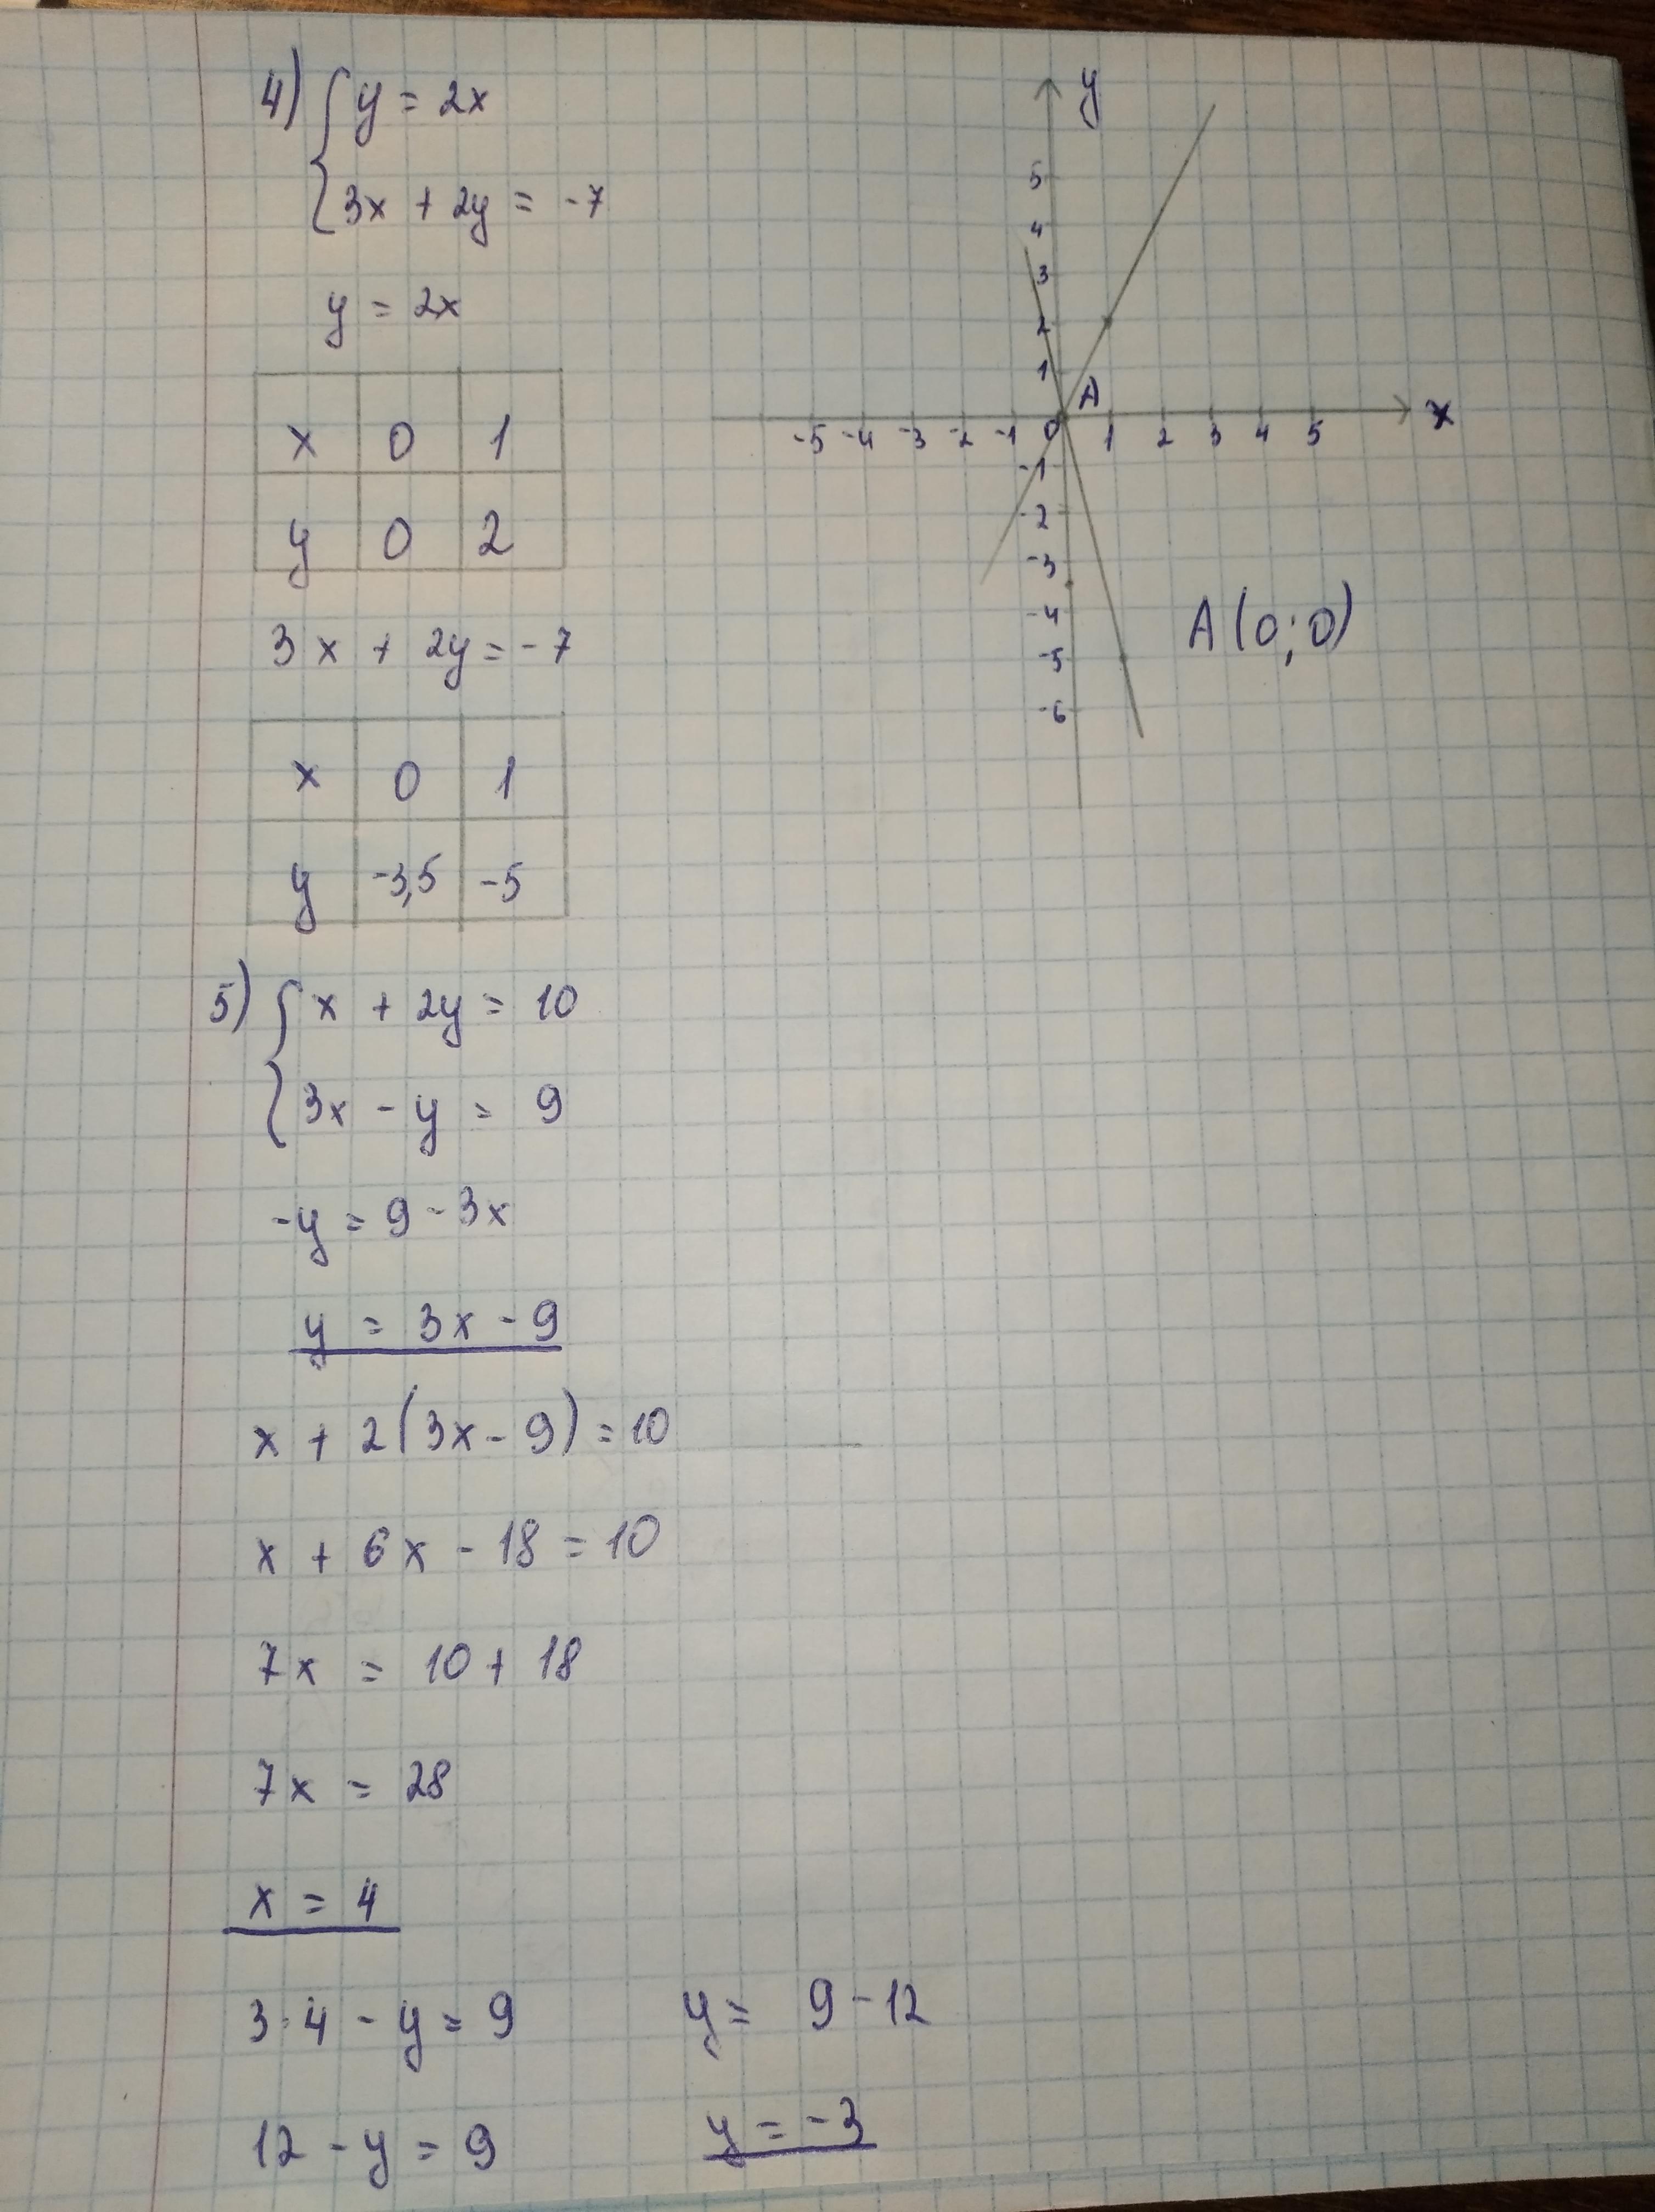 4) { y = 2x
3x + 2y = -7
y = 2x
x 0 1
y 0 2
3x + 2y = -7
x 0 1
y -3,5 -5
y
5
4
3
2
1
A
-5 -4 -3 -2 -1 0 1 2 3 4 5 x
-1
-2
-3
-4
-5
-6
A(0;0)
5) { x + 2y = 10
3x - y = 9
-y = 9 - 3x
y = 3x - 9
x + 2(3x - 9) = 10
x + 6x - 18 = 10
7x = 10 + 18
7x = 28
x = 4
3·4 - y = 9
12 - y = 9
y = 9 - 12
y = -3